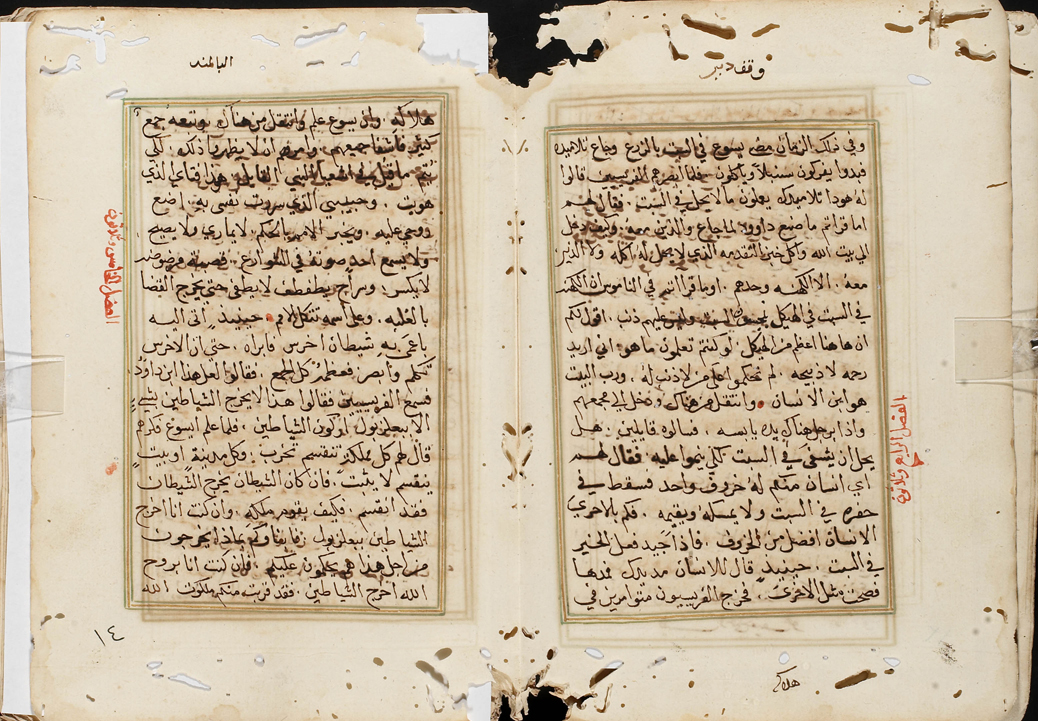 وقف دير
وفي ذلك الزمان مضى يسوع في السبت بالزرع وجاع تلاميده
فبدوا يفركون سنبلاً وياكلون فلما ابصرهم الفريسيين قالوا
له هودا تلاميدك يعلون ما لا يحل في السبت فقال لهم
اما قراتم ما صنع داوود لما جاع والدين معه وكيف دخل
الى بيت الله واكل خبز التقدمه الدي لا يحل له اكله ولا الدين
معه الا الكهنه وحدهم اوما قراتم في الناموس ان الكهنه
في السبت في الهيكل السبت وليس عليهم ذنب اقول لكم
ان هاهنا اعظم من الهيكل لو كنتم تعلمون ما هو اني اريد
رحمه لا دبيحه لم تحكموا على من لا ذنب له ورب السبت
هو ابن الانسان وانتقل من هناك ودخل الى مجمعهم
واذا برجل هناك يده يابسه فسالوه قايلين هل
يحل ان يشفى في السبت لكي ينموا عليه فقال لهم
اي انسان منكم له خروف واحد فسقط في
حفره في السبت ولا يمسكه ويقيمه فكم بالاحري
الانسان افضل من الخروف فاذا جيد فعل الخير
في السبت حينيد قال للانسان مد يدك فمدها
فصحت مثل الاخرى فخرج الفريسيون متوامرين في
الفصل الرابع وثلاثون
هلاكه
البلمند
هلاكه وان يسوع علم وانتقل من هناك وتبعه جمع
كثير فاشفا جميعهم وامرهم ان لا يظهروا ذلك لكي
يتم ما قيل في اشعيا النبي القايل هودا فتاي الذي
هويت وحبيبي الذي سرت نفسي به اضع
روحي عليه ويخبر الامم بالحكم لا يماري ولا يصيح
ولا يسمع احد صوته في الشوارع قصبة مرضوضه
لا يكسر وسراج يطفطف لا يطفى حتى يخرج القضا
بالغلبه وعلى اسمه تتكل الامم حينيد اتى اليه
باعمى به شيطان اخرس فابراه حتى ان الاخرس
تكلم وابصر فبهت كل الجمع فقالوا لعل هذا ابن داوود
فسمع الفريسيين فقالوا هدا لا يخرج الشياطين
الا ببعلزبول اركون الشياطين فلما علم ايسوع فكرهم
قال لهم كل مملكه تنقسم تخرب وكل مدينة او بيت
ينقسم لا يثبت فان كان الشيطان يخرج الشيطان
فقد انقسم فكيف يقوم ملكه وان كنت انا اخرج
الشياطين ببعلزبول فابناوكم بماذا يخرجون
من اجل هدا هم يحكمون عليكم فان كنت انا بروح
الله اخرج الشياطين فقد قربت منكم ملكوت الله
الفصل الخامس وثلاثون
١٤